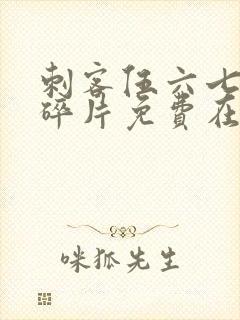 刺客伍六七
碎片免费在
咪狐先生